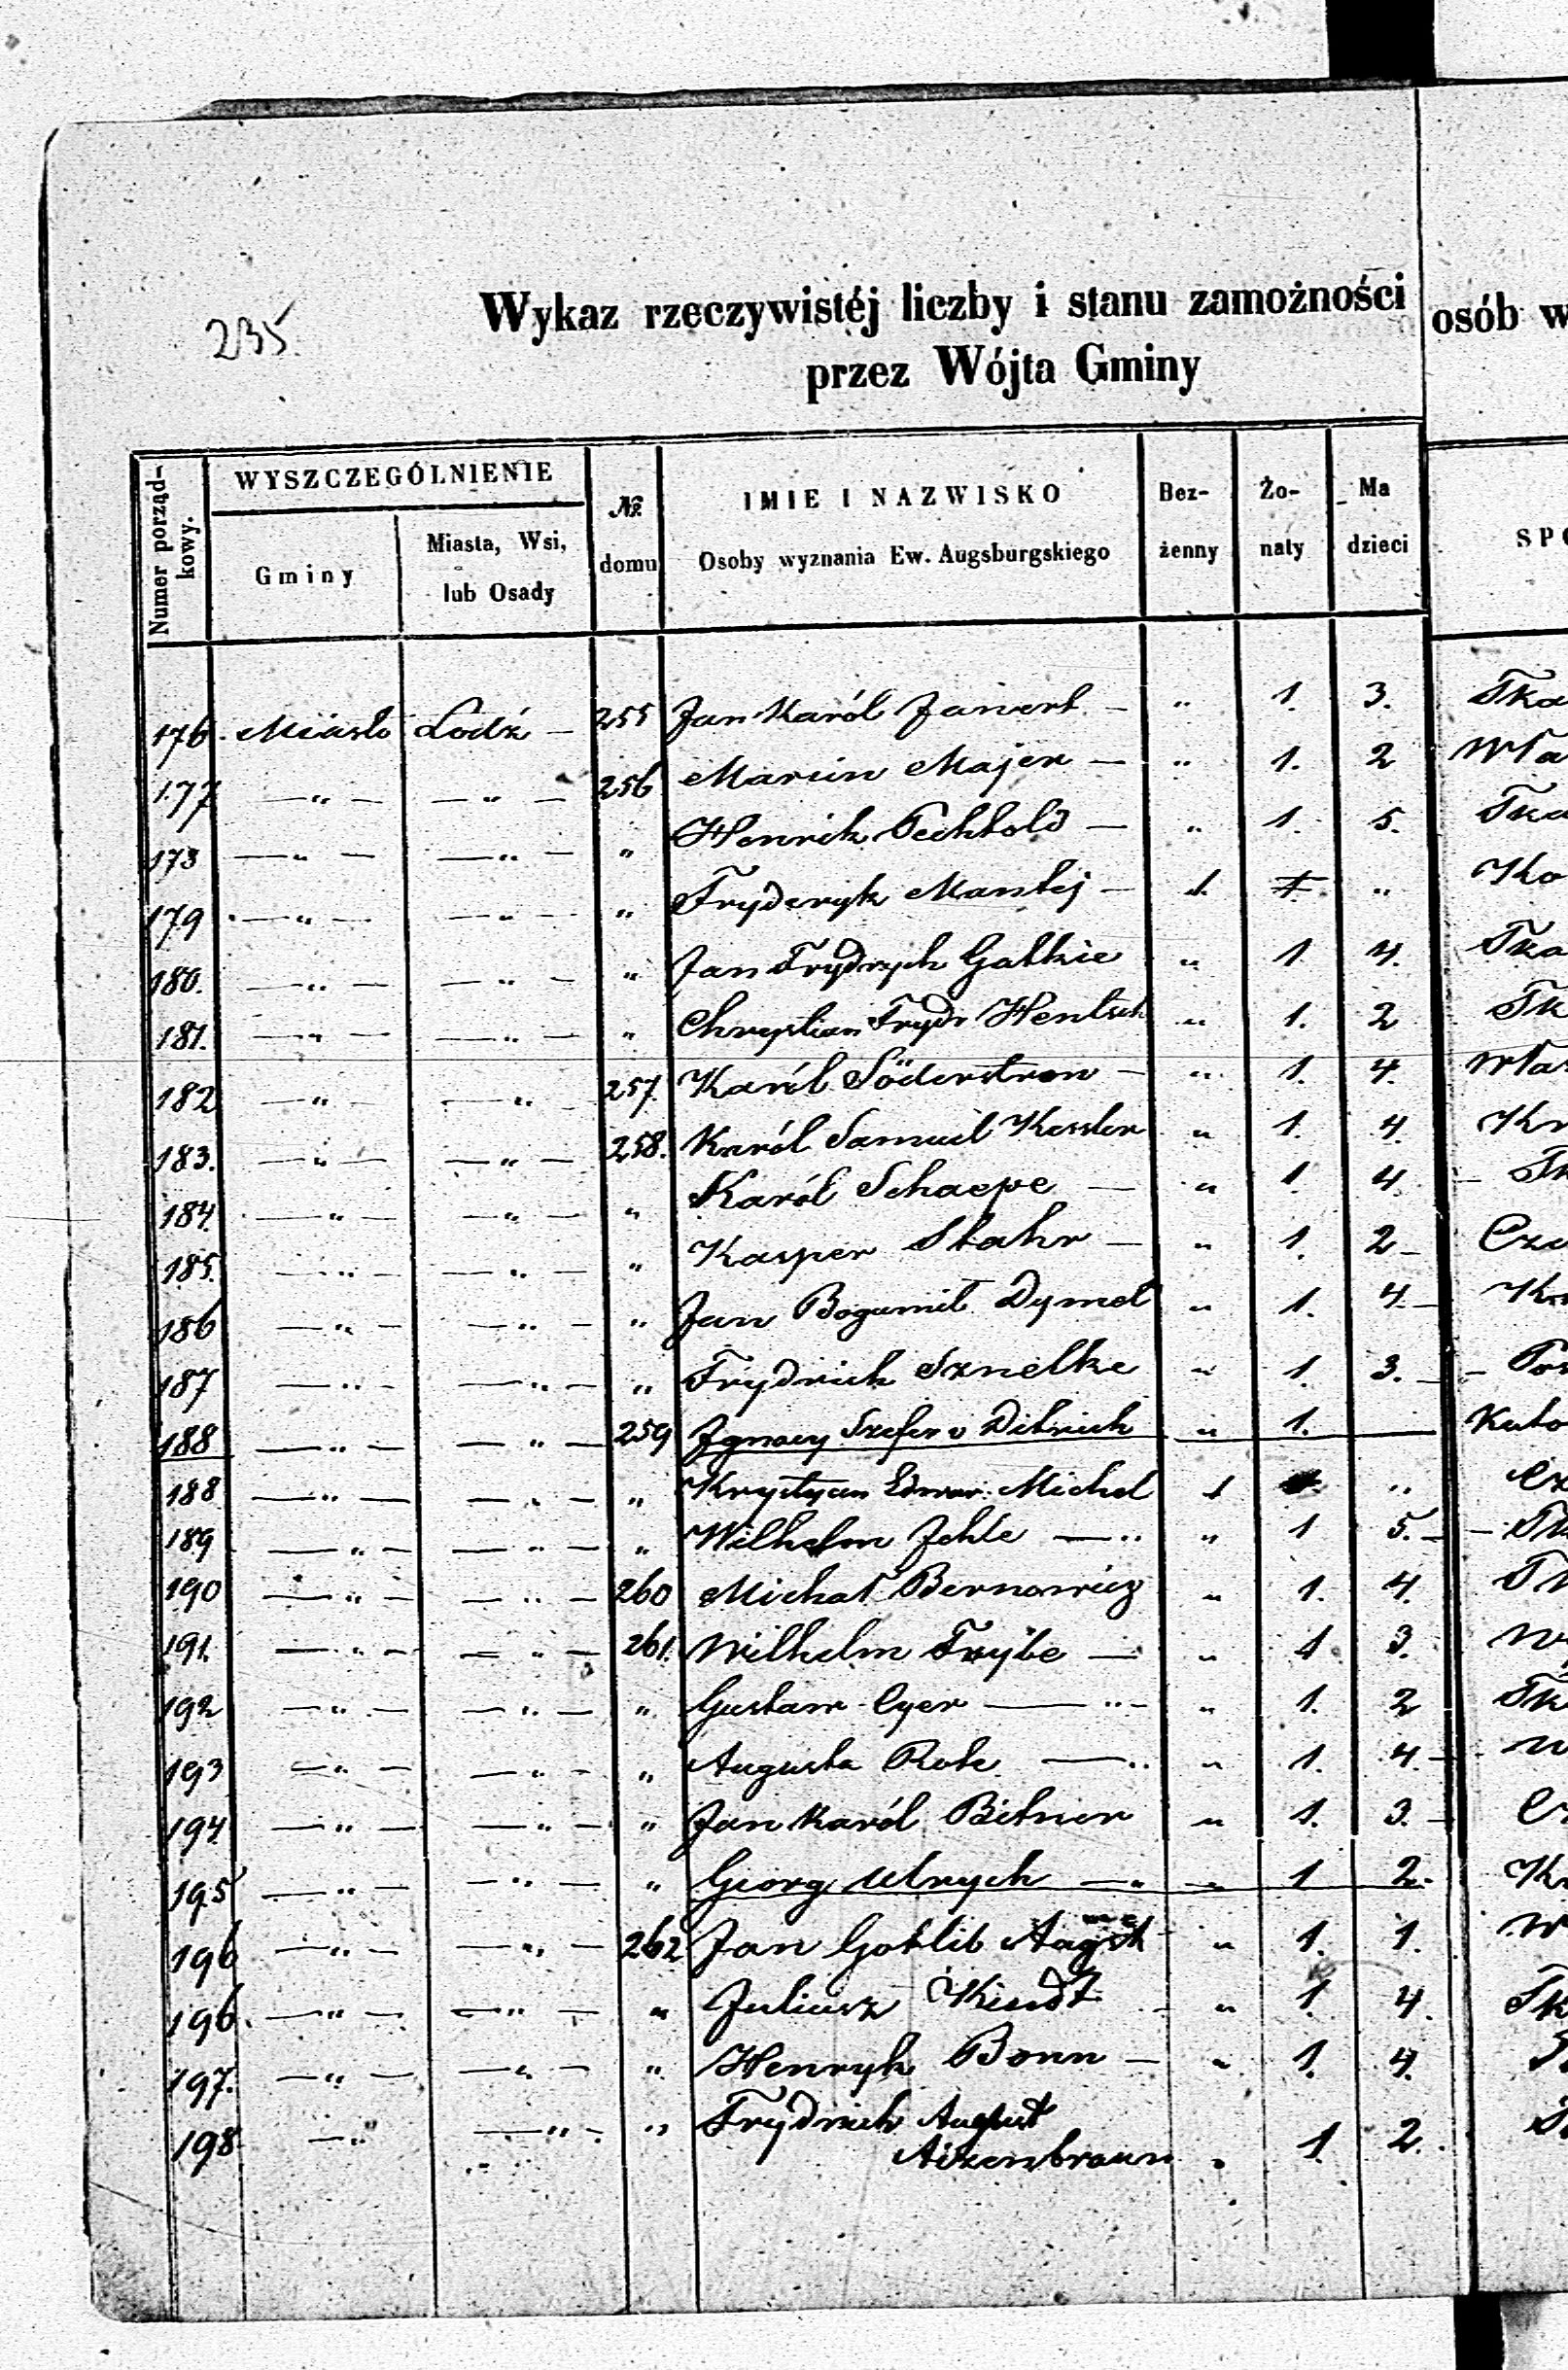 235.
Wykaz rzeczywistéj liczby i stanu zamożności osób w
przez Wójta Gminy
Numer porząd-kowy. WYSZCZEGÓLNIENIE № domu IMIE I NAZWISKO Bez-żenny Żo-nały Ma dzieci SPO
Gminy Miasta, Wsi, lub Osady Osoby wyznania Ew. Augsburgskiego
176. Miasto Lodź — 255 Jan Karól Janert — " 1. 3. Tka
177 —"— —"— 256 Marcin Majer — " 1. 2 Wła
173 —"— —"— " Henrik Pechtold — " 1. 5. Tka
179 —"— —"— " Fryderyk Mantej — 1. 1. " Ko
180. —"— —"— " Jan Frydrych Gatkie " 1 4. Tka
181. —"— —"— " Chrystian Frydr Hentsch " 1. 2 Tk
182 —"— —"— 257. Karól Söderstron — " 1. 4. Wła
183. —"— —"— 258. Karól Samuel Kessler " 1. 4. Kr
184. —"— —"— " Karól Schaepe — " 1 4. — Tk
185. —"— —"— " Kasper Stahr — " 1. 2 —
186 —"— —"— " Jan Bogumił Dymel " 1. 4. —
187 —"— —"— " Frydrich Sznelke " 1. 3. —
188 —"— —"— 259 Ignacy Szefer v Ditrich " 1.
188 —"— —"— " Krystyan Edwar. Michel 1 "
189 —"— —"— " Wilhelm Jehle —" " 1 5. —
190 —"— —"— 260 Michał Bernowicz " 1. 4.
191. —"— —"— 261. Wilhelm Frybe — " 1 3.
192 —"— —"— " Gustaw Eyer —"— " 1. 2 Tk
193 —"— —"— " Augusta Rote —" " 1. 4. —
194. —"— —"— " Jan Karól Bitner " 1. 3. —
195 —"— —"— " Georg Ulrych —" " 1 2. Kr
196 —"— —"— 262 Jan Gotlib August " 1. 1. W
196. —"— —"— " Juliusz Kindt " 1. 4. Tk
197. —"— —"— " Henryk Bonn — " 1. 4.
198 —"— —"— " Frydrich August
Aizenbraun " 1. 2.